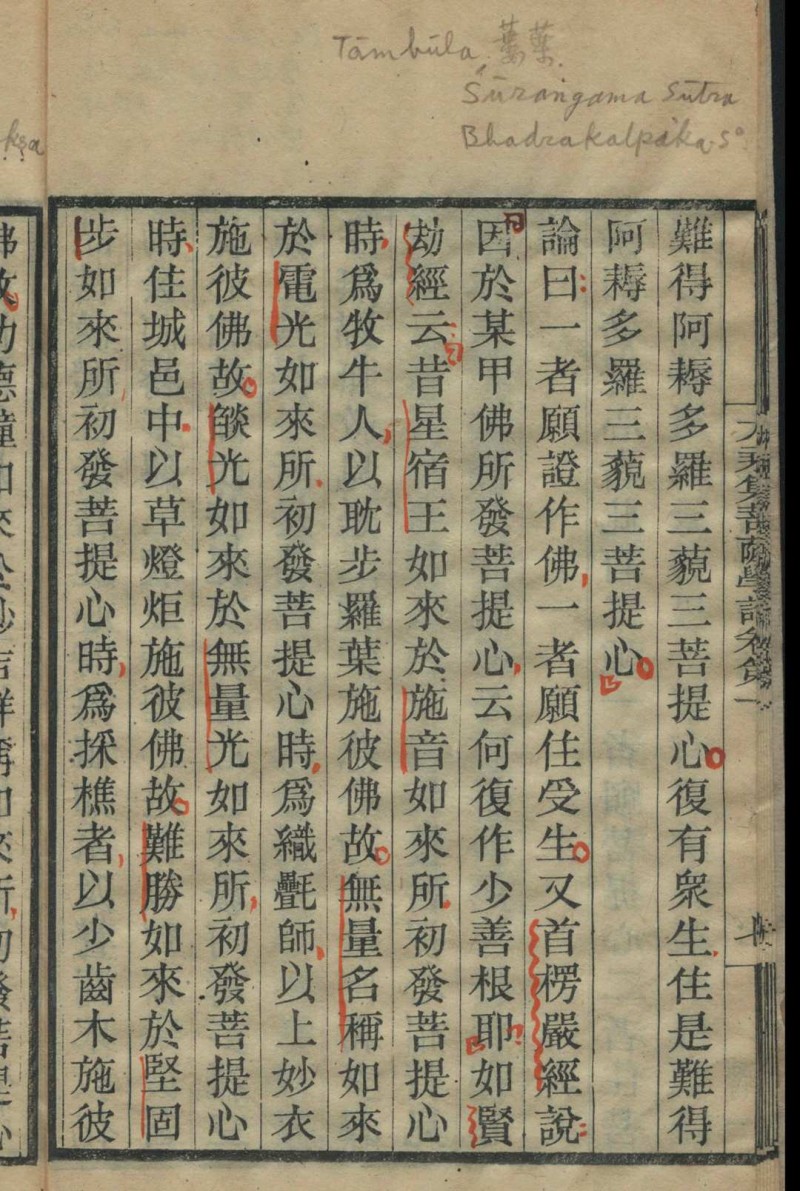 Tāmbūla 蔞葉.
Śūraṅgama Sūtra
Bhadrakalpika-S°
kṣa
難得阿耨多羅三藐三菩提心復有衆生住是難得
阿耨多羅三藐三菩提心
論曰一者願證作佛一者願住受生又首楞嚴經說
因於某甲佛所發菩提心云何復作少善根耶如賢
劫經云昔星宿王如來於施音如來所初發菩提心
時爲牧牛人以耽步羅葉施彼佛故無量名稱如來
於電光如來所初發菩提心時爲織氎師以上妙衣
施彼佛故燄光如來於無量光如來所初發菩提心
時住城邑中以草燈炬施彼佛故難勝如來於堅固
步如來所初發菩提心時爲採樵者以少齒木施彼
大乘集菩薩學論卷第一